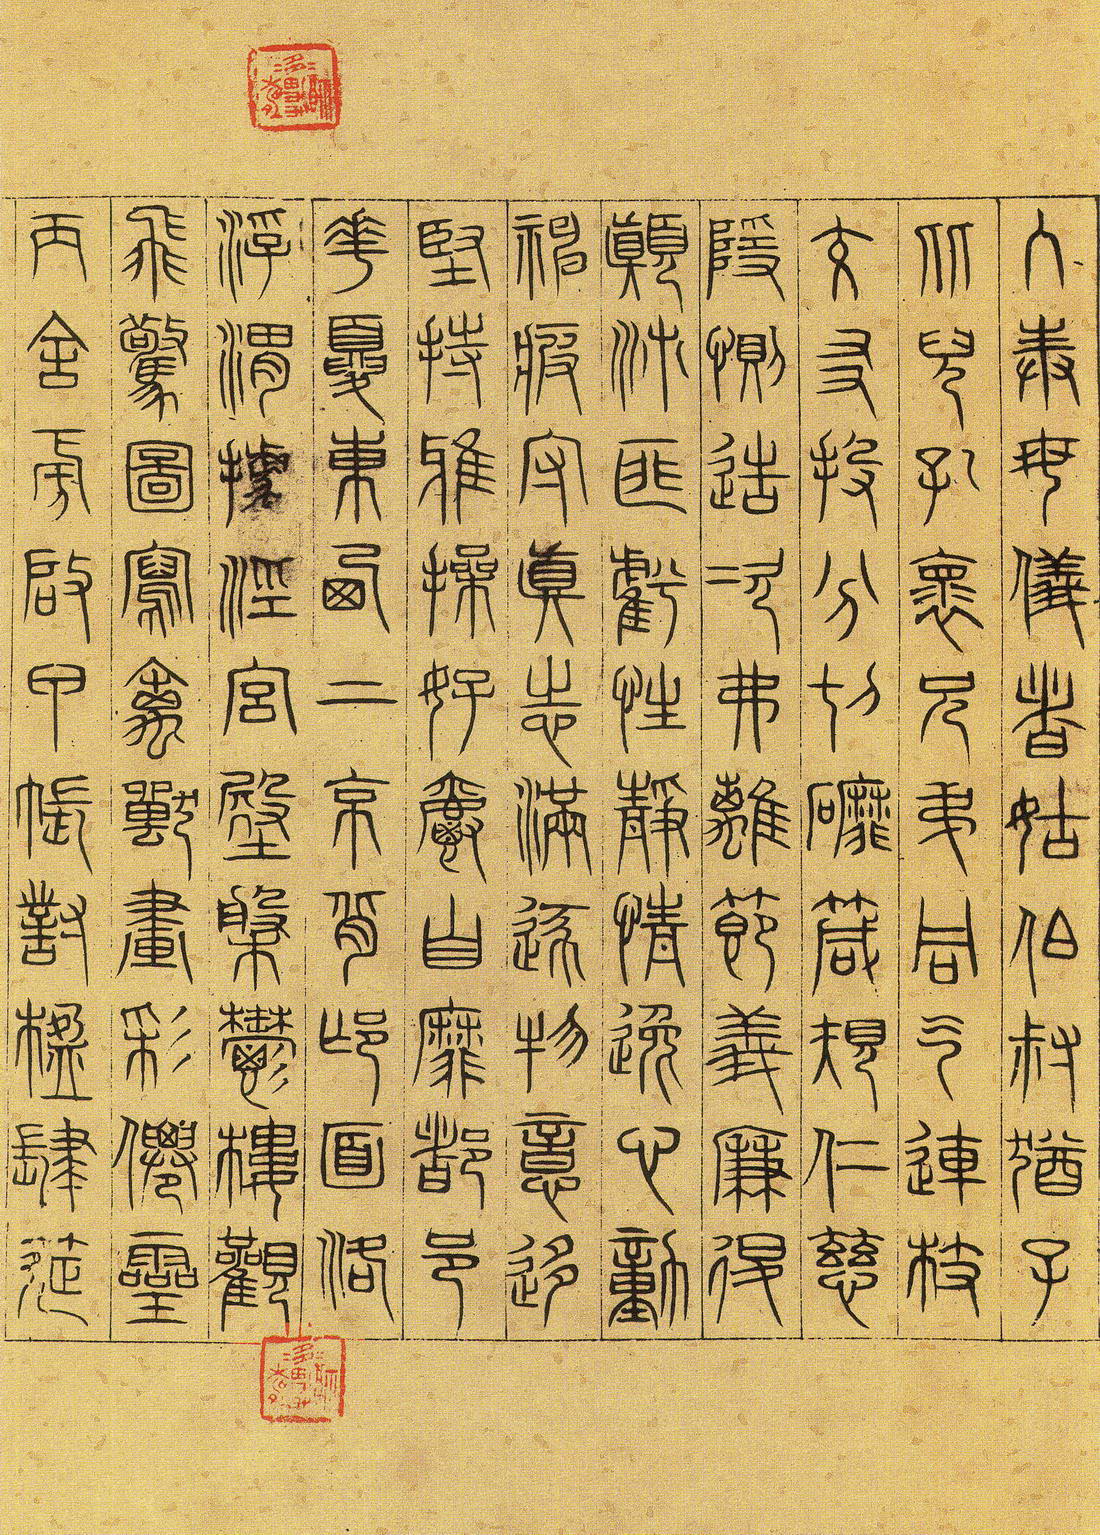 入奉母儀者姑伯叔猶子
比兒孔褱兄弟同气連枝
交友投分切礳箴規仁慈
隱惻造次弗離節義廉退
顛沛匪虧性靜情逸心動
神疲守真志滿逐物意迻
堅持雅操好爵自靡都邑
華夏東西二京背邙面洛
浮渭據涇宮殿槃鬱樓觀
飛驚圖寫禽獸畫彩僊靈
丙舍傍啟甲帳對楹肆筵